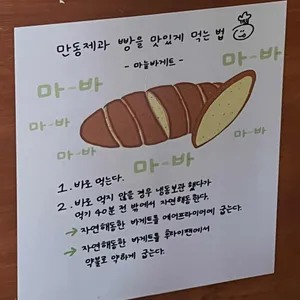 만동제과 빵을 맛있게 먹는 법
- 마늘바게트 -
마-바
마-바
마-바
마-바
마-바
마-바
1. 바로 먹는다.
2. 바로 먹지 않을 경우 냉동보관 했다가
먹기 40분 전 밖에서 자연해동한다.
→ 자연해동한 바게트를 에어프라이어에 굽는다.
→ 자연해동한 바게트를 후라이팬에서
약불로 약하게 굽는다.